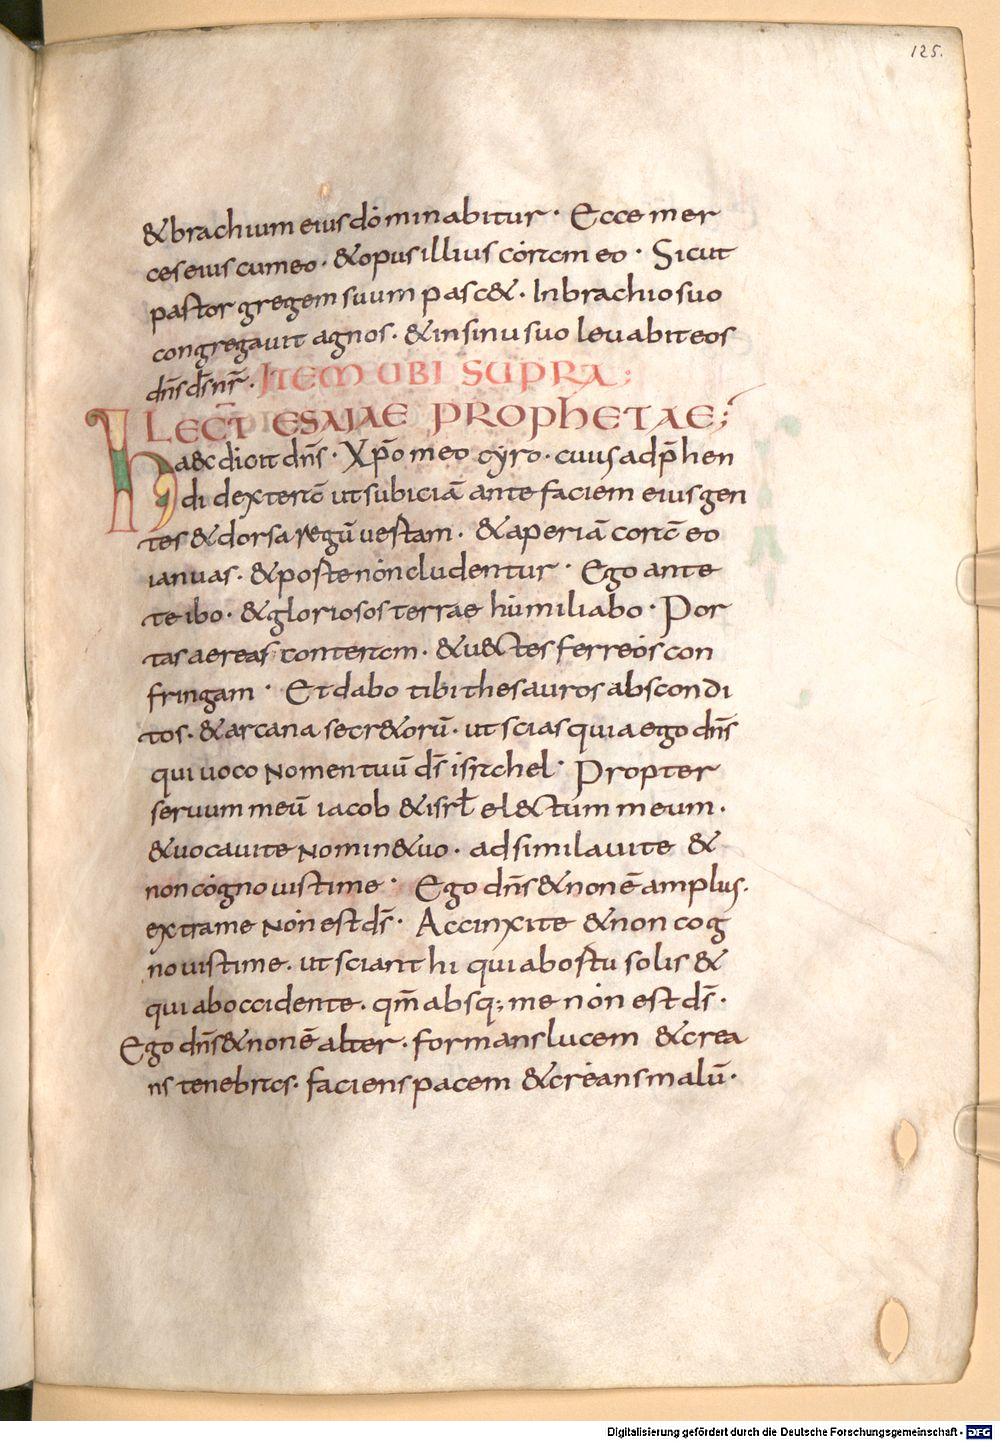 125.
& brachium eius dominabitur · Ecce mer
ces eius cum eo · & opus illius coram eo · Sicut
pastor gregem suum pasc& · In brachio suo
congregavit agnos · & in sinu suo levabit eos
dn̄s ds̄ nr̄ · ITEM UBI SUPRA;
LECT̄ ESAIAE PROPHETAE;
haec dicit dn̄s · Xp̄o meo cyro · cuius adp̄hen
di dexterā ut subiciā ante faciem eius gen
tes & dorsa regū vertam · & aperiā corā eo
ianuas · & porte non cludentur · Ego ante
te ibo · & gloriosos terrae humiliabo · Por
tas aereas conteram · & vectes ferreos con
fringam · Et dabo tibi thesauros abscondi
tos · & arcana secr&orū · ut scias quia ego dn̄s
qui voco nomen tuū ds̄ israhel · Propter
servum meū iacob & isrł electum meum ·
& vocavi te nomine & uo · adsimilavi te &
non cognovisti me · Ego dn̄s & non ē amplius ·
extra me non est ds̄ · Accinxi te & non cog
novisti me · ut sciant hi qui ab ortu solis &
qui ab occidente · qm̄ absq; me non est ds̄ ·
Ego dn̄s & non ē alter · formans lucem & crea
ns tenebras · faciens pacem & creans malū ·
Digitalisierung gefördert durch die Deutsche Forschungsgemeinschaft - DFG